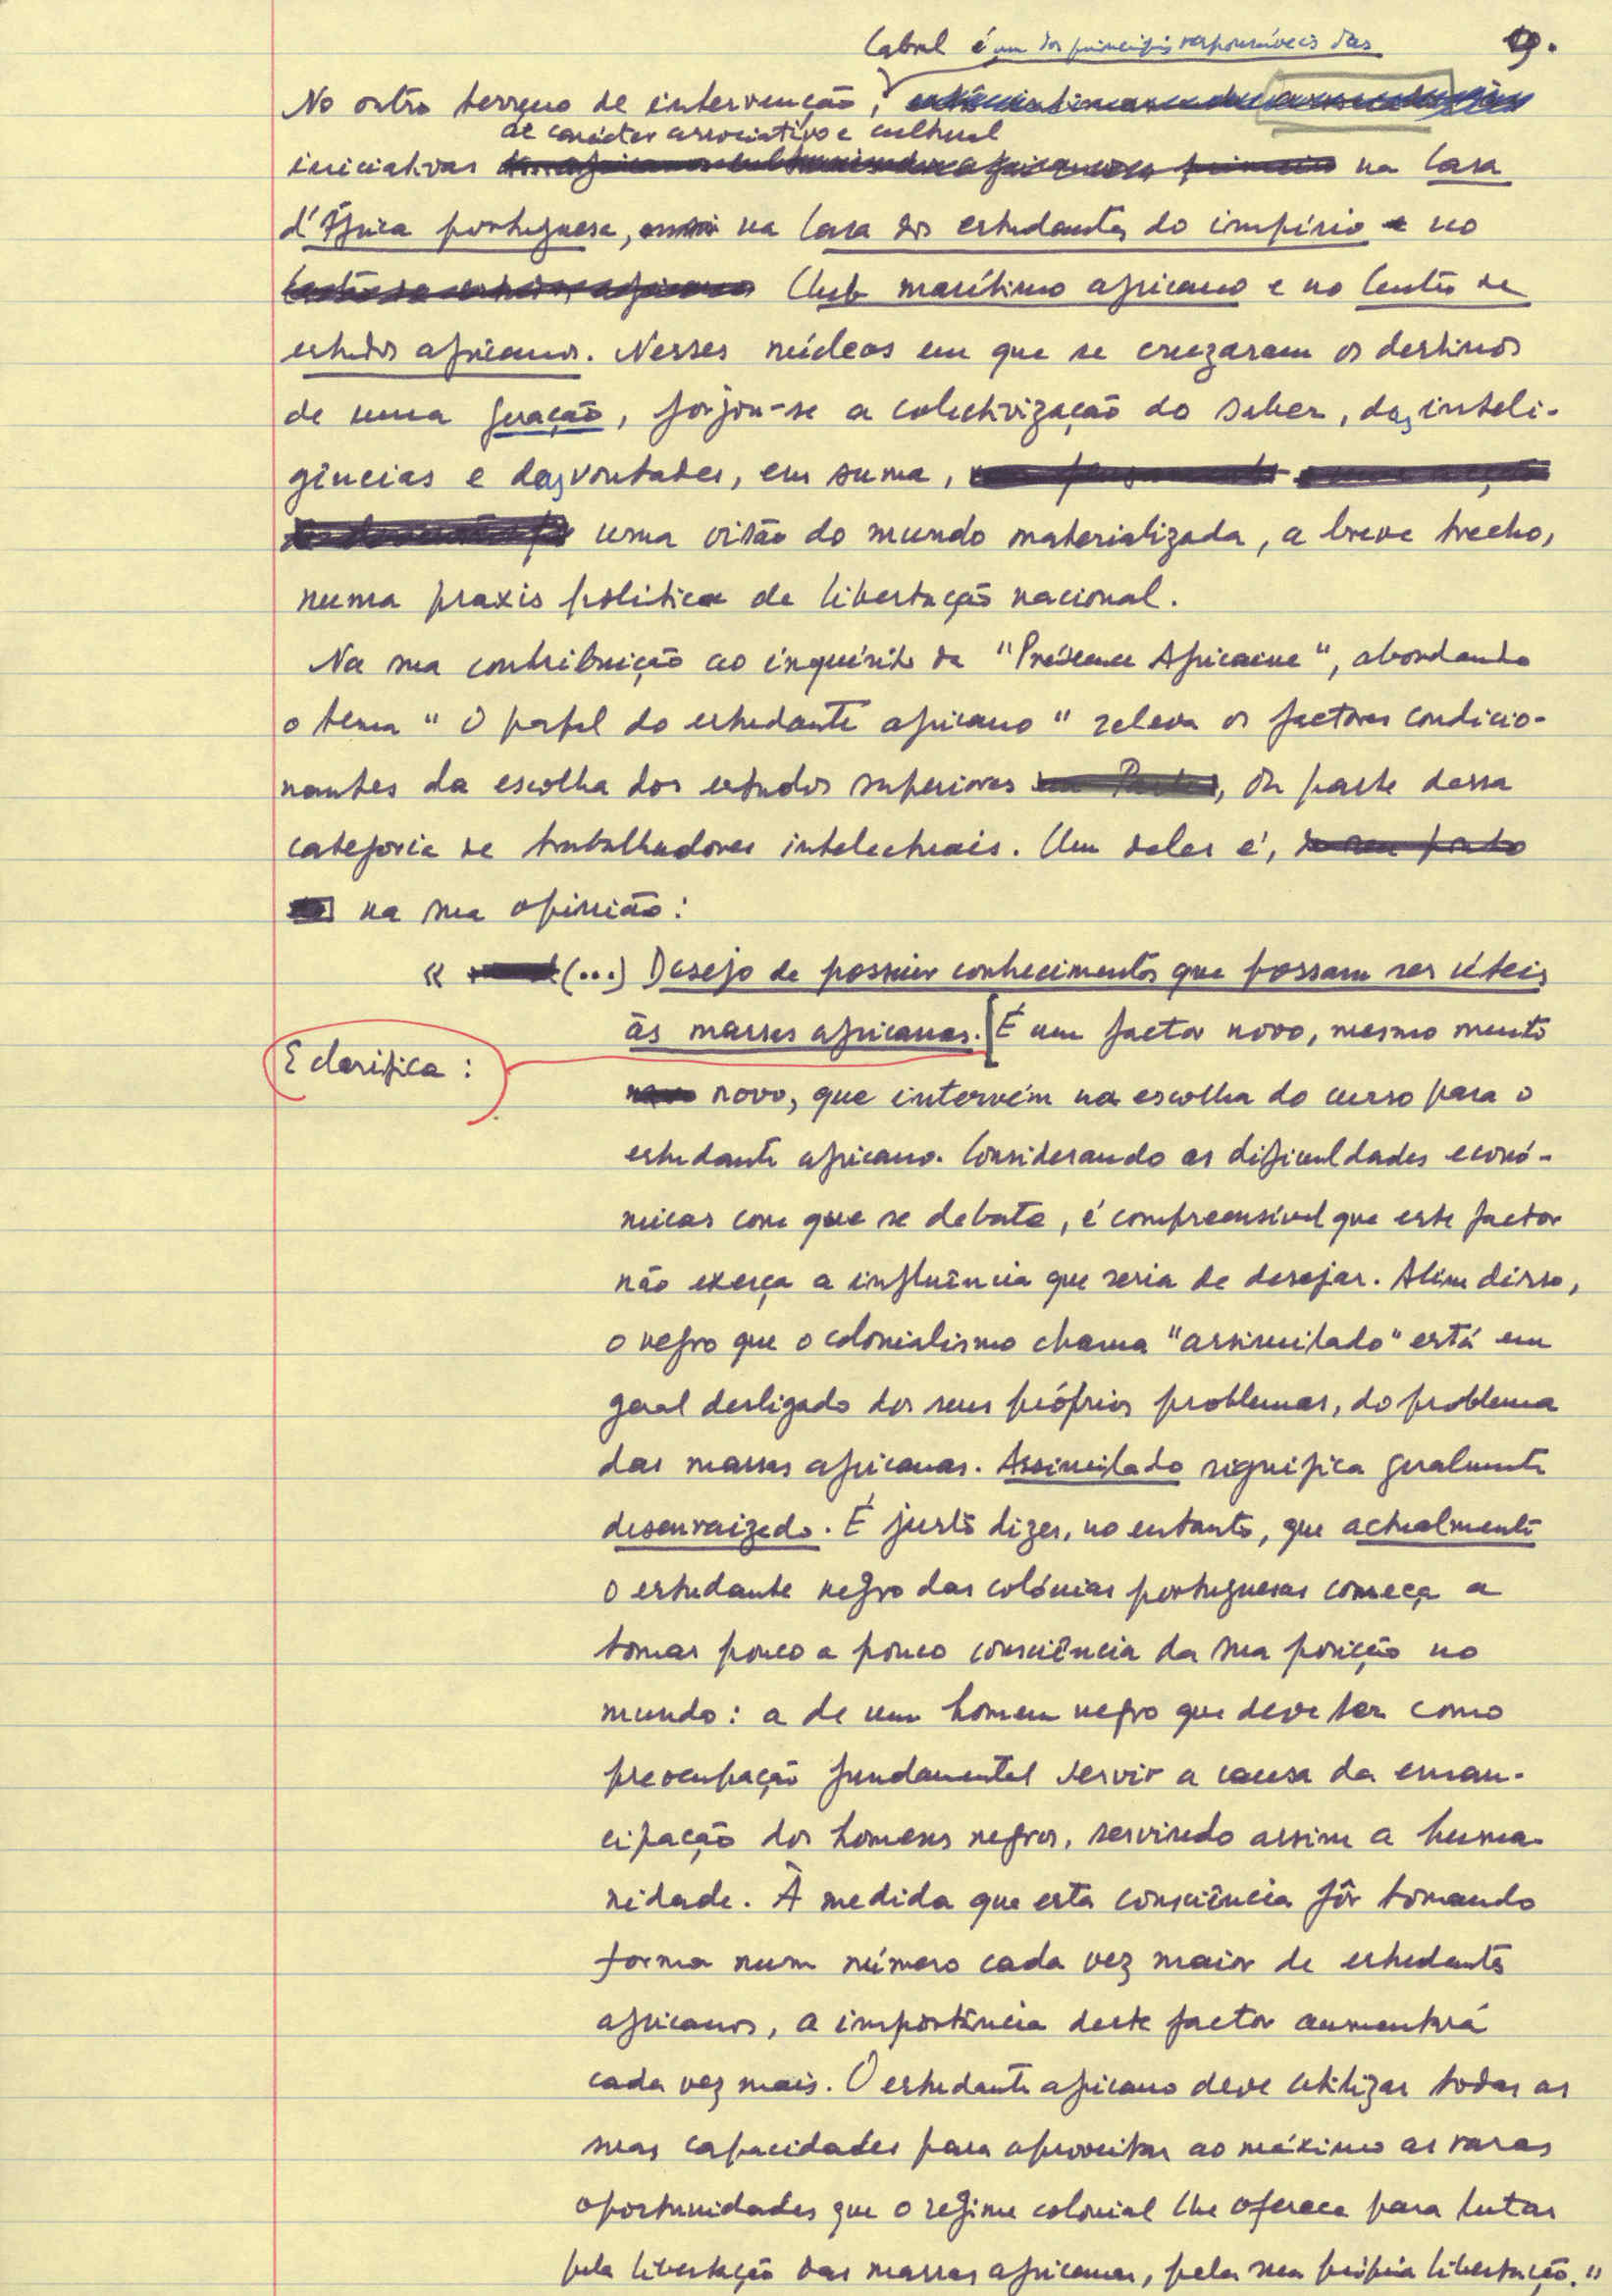 Cabral é um dos principais responsáveis das
9.
No outro terreno de intervenção,
de carácter associativo e cultural
iniciativas na Casa
d'África portuguesa, na Casa dos estudantes do império e no
Club marítimo africano e no Centro de
estudos africanos. Nesses núcleos em que se cruzaram os destinos
de uma geração, forjou-se a colectivização do saber, das inteli-
gências e das vontades, em suma,
uma visão do mundo materializada, a breve trecho,
numa praxis politica de libertação nacional.
Na sua contribuição ao inquérito da "Présence Africaine", abordando
o tema "O papel do estudante africano" releva os factores condicio-
nantes da escolha dos estudos superiores, da parte dessa
categoria de trabalhadores intelectuais. Um deles é,
na sua opinião:
« (...) Desejo de possuir conhecimentos que possam ser úteis
às massas africanas. [É um factor novo, mesmo muito
E clarifica:
novo, que intervém na escolha do curso para o
estudante africano. Considerando as dificuldades econó-
micas com que se debate, é compreensível que este factor
não exerça a influência que seria de desejar. Além disso,
o negro que o colonialismo chama "assimilado" está em
geral desligado dos seus próprios problemas, do problema
das massas africanas. Assimilado significa geralmente
desenraizado. É justo dizer, no entanto, que actualmente
o estudante negro das colónias portuguesas começa a
tomar pouco a pouco consciência da sua posição no
mundo: a de um homem negro que deve ter como
preocupação fundamental servir a causa da eman-
cipação dos homens negros, servindo assim a huma-
nidade. À medida que esta consciência fôr tomando
forma num número cada vez maior de estudantes
africanos, a importância deste factor aumentará
cada vez mais. O estudante africano deve utilizar todas as
suas capacidades para aproveitar ao máximo as raras
oportunidades que o regime colonial lhe oferece para lutar
pela libertação das massas africanas, pela sua própria libertação."